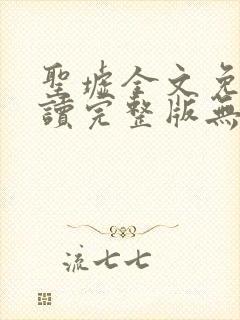 聖墟全文免
讀完整版無
流七七